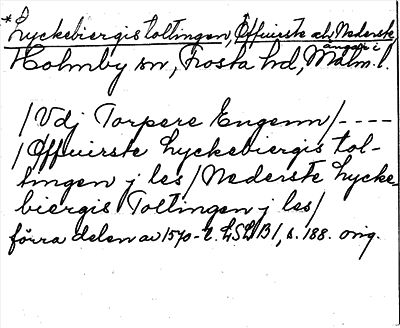 *Lyckebiergis toltingen, Øffuerste och Nederste,
ängar i
Holmby sn, Frosta hd, Malm. l.
/Vdj Torpere Engenn/----
/Øffuerste Lyckebiergis tol-
tingen j les/Nederste Lycke-
biergis Toltingen j les/
förra delen av 1570-t. LSLB 1, s. 188. orig.